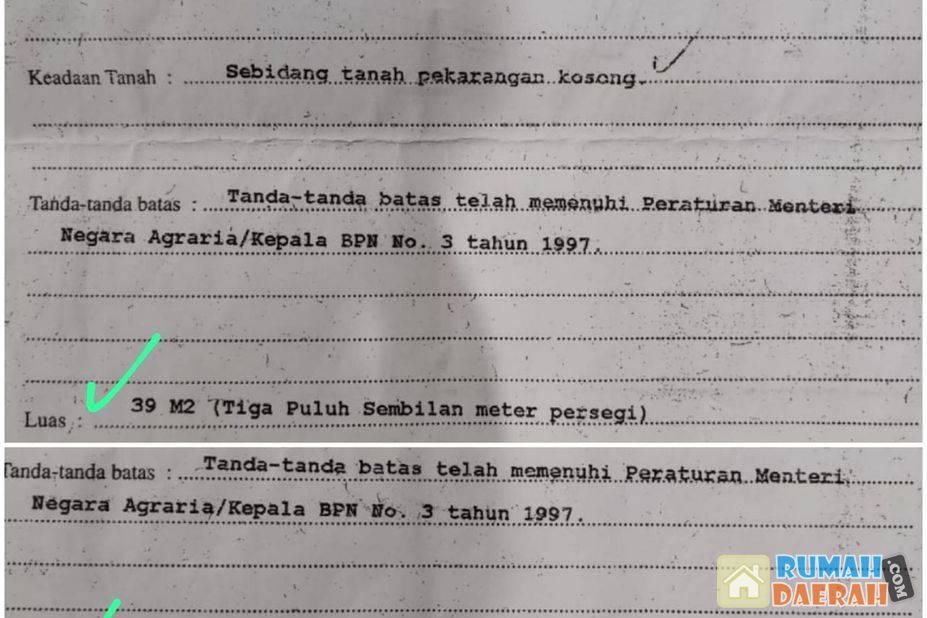 Keadaan Tanah : Sebidang tanah pekarangan kosong.
Tanda-tanda batas : Tanda-tanda batas telah memenuhi Peraturan Menteri
Negara Agraria/Kepala BPN No. 3 tahun 1997.
Luas : 39 M2 (Tiga Puluh Sembilan meter persegi)
Tanda-tanda batas : Tanda-tanda batas telah memenuhi Peraturan Menteri
Negara Agraria/Kepala BPN No. 3 tahun 1997.
RUMAH
DAERAH
.COM